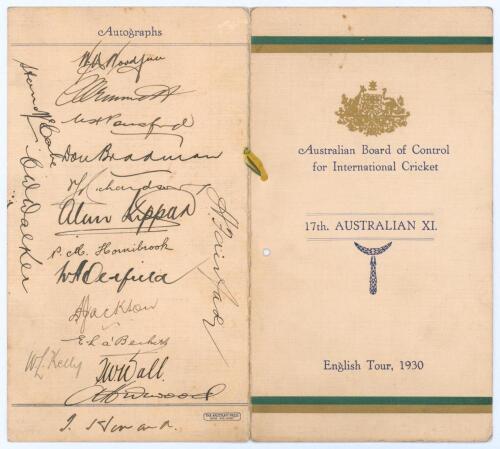 Autographs
W M Woodfull
C V Grimmett
W H Ponsford
Don Bradman
V Y Richardson
Alan Kippax
P. M. Hornibrook
W A Oldfield
A Jackson
E L a'Beckett
T W Wall
A Hurwood
Stan McCabe
C W Walker
A. Fairfax
W L Kelly
THE AUSTRALIAN PRESS
Australian Board of Control
for International Cricket
17th. AUSTRALIAN XI.
English Tour, 1930